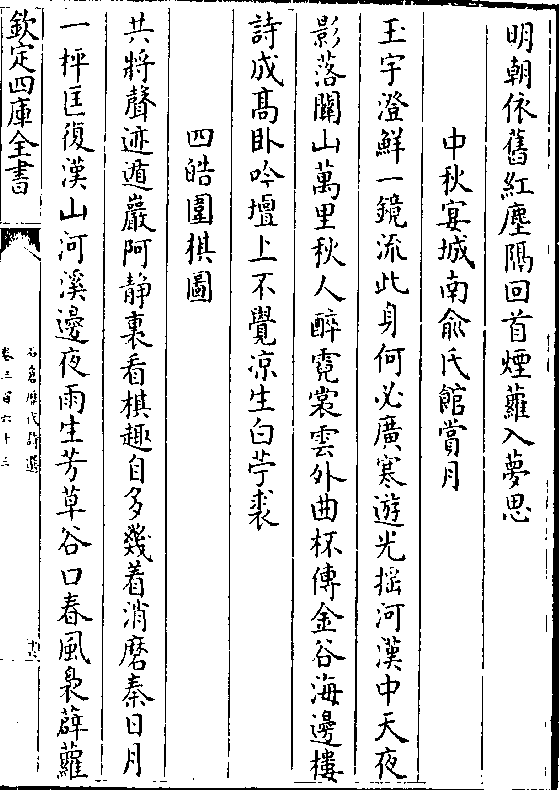 明朝依舊紅塵隔回首煙蘿入夢思
中秋宴城南俞氏館賞月
玉宇澄鮮一鏡流此身何必廣寒遊光揺河漢中天夜
影落闗山萬里秋人醉霓裳雲外曲杯傳金谷海邊樓
詩成髙卧吟壇上不覺凉生白苧裘
四皓圍棋圖
共將聲迹遁巖阿静裏看棋趣自多幾着消磨秦日月
一枰匡復漢山河溪邊夜雨生芳草谷口春風裊薜蘿
欽定四庫全書
石倉歴代詩選
卷三百六十三